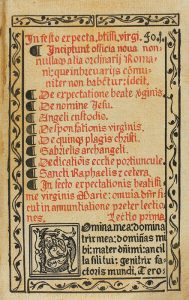 In festo expecta. btissi. virgi. Fo.j.
Incipiunt officia noua non
nulla qz alia ordinarij Roma
ni: que in breuiarijs cõmu
niter non habẽtur: ideſt.
De expectatione beate x̃ginis.
De nomine Jeſu.
Angeli cuſtodis.
Deſponſationis virginis.
De quinqz plagis chriſti.
Gabrielis archangeli.
Dedicatiõis eccłie portiuncule.
Sancti Raphaelis z cetera.
In feſto expectationis beatiſſi
me virginis Marie: omnia dñr ſi
cut in annuntiatione preter lectio
nes. Lectio prima.
Domina mea: domina
trix mea: dominãs mi
hi: mater dñi mei: ancil
la filij tui: genitrix fa
ctoris mundi, Te ro: